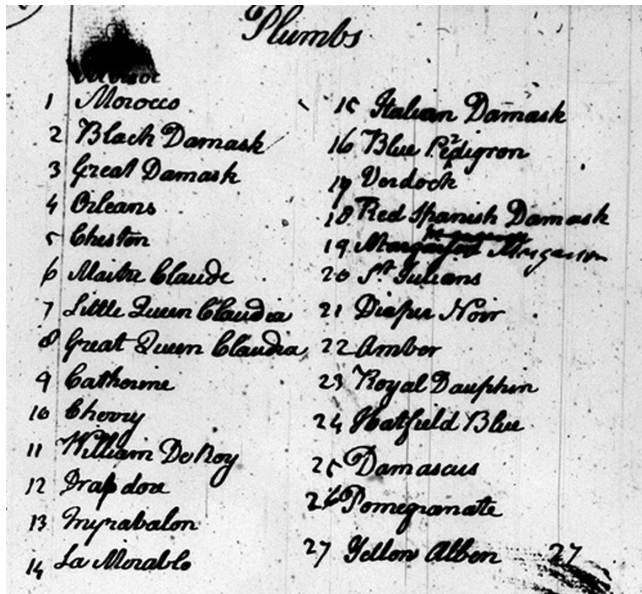 Plumbs
1 Morocco
2 Black Damask
3 Great Damask
4 Orleans
5 Cheston
6 Maitre Claude
7 Little Queen Claudia
8 Great Queen Claudia
9 Catherine
10 Cherry
11 William De Roy
12 Drap dore
13 Myrabalon
14 La Morable
15 Italian Damask
16 Blue Perdigron
17 Verdock
18 Red Spanish Damask
19
20 St Julians
21 Diaper Noir
22 Amber
23 Royal Dauphin
24 Hatfield Blue
25 Damascus
26 Pomegranate
27 Yellow Alben 27